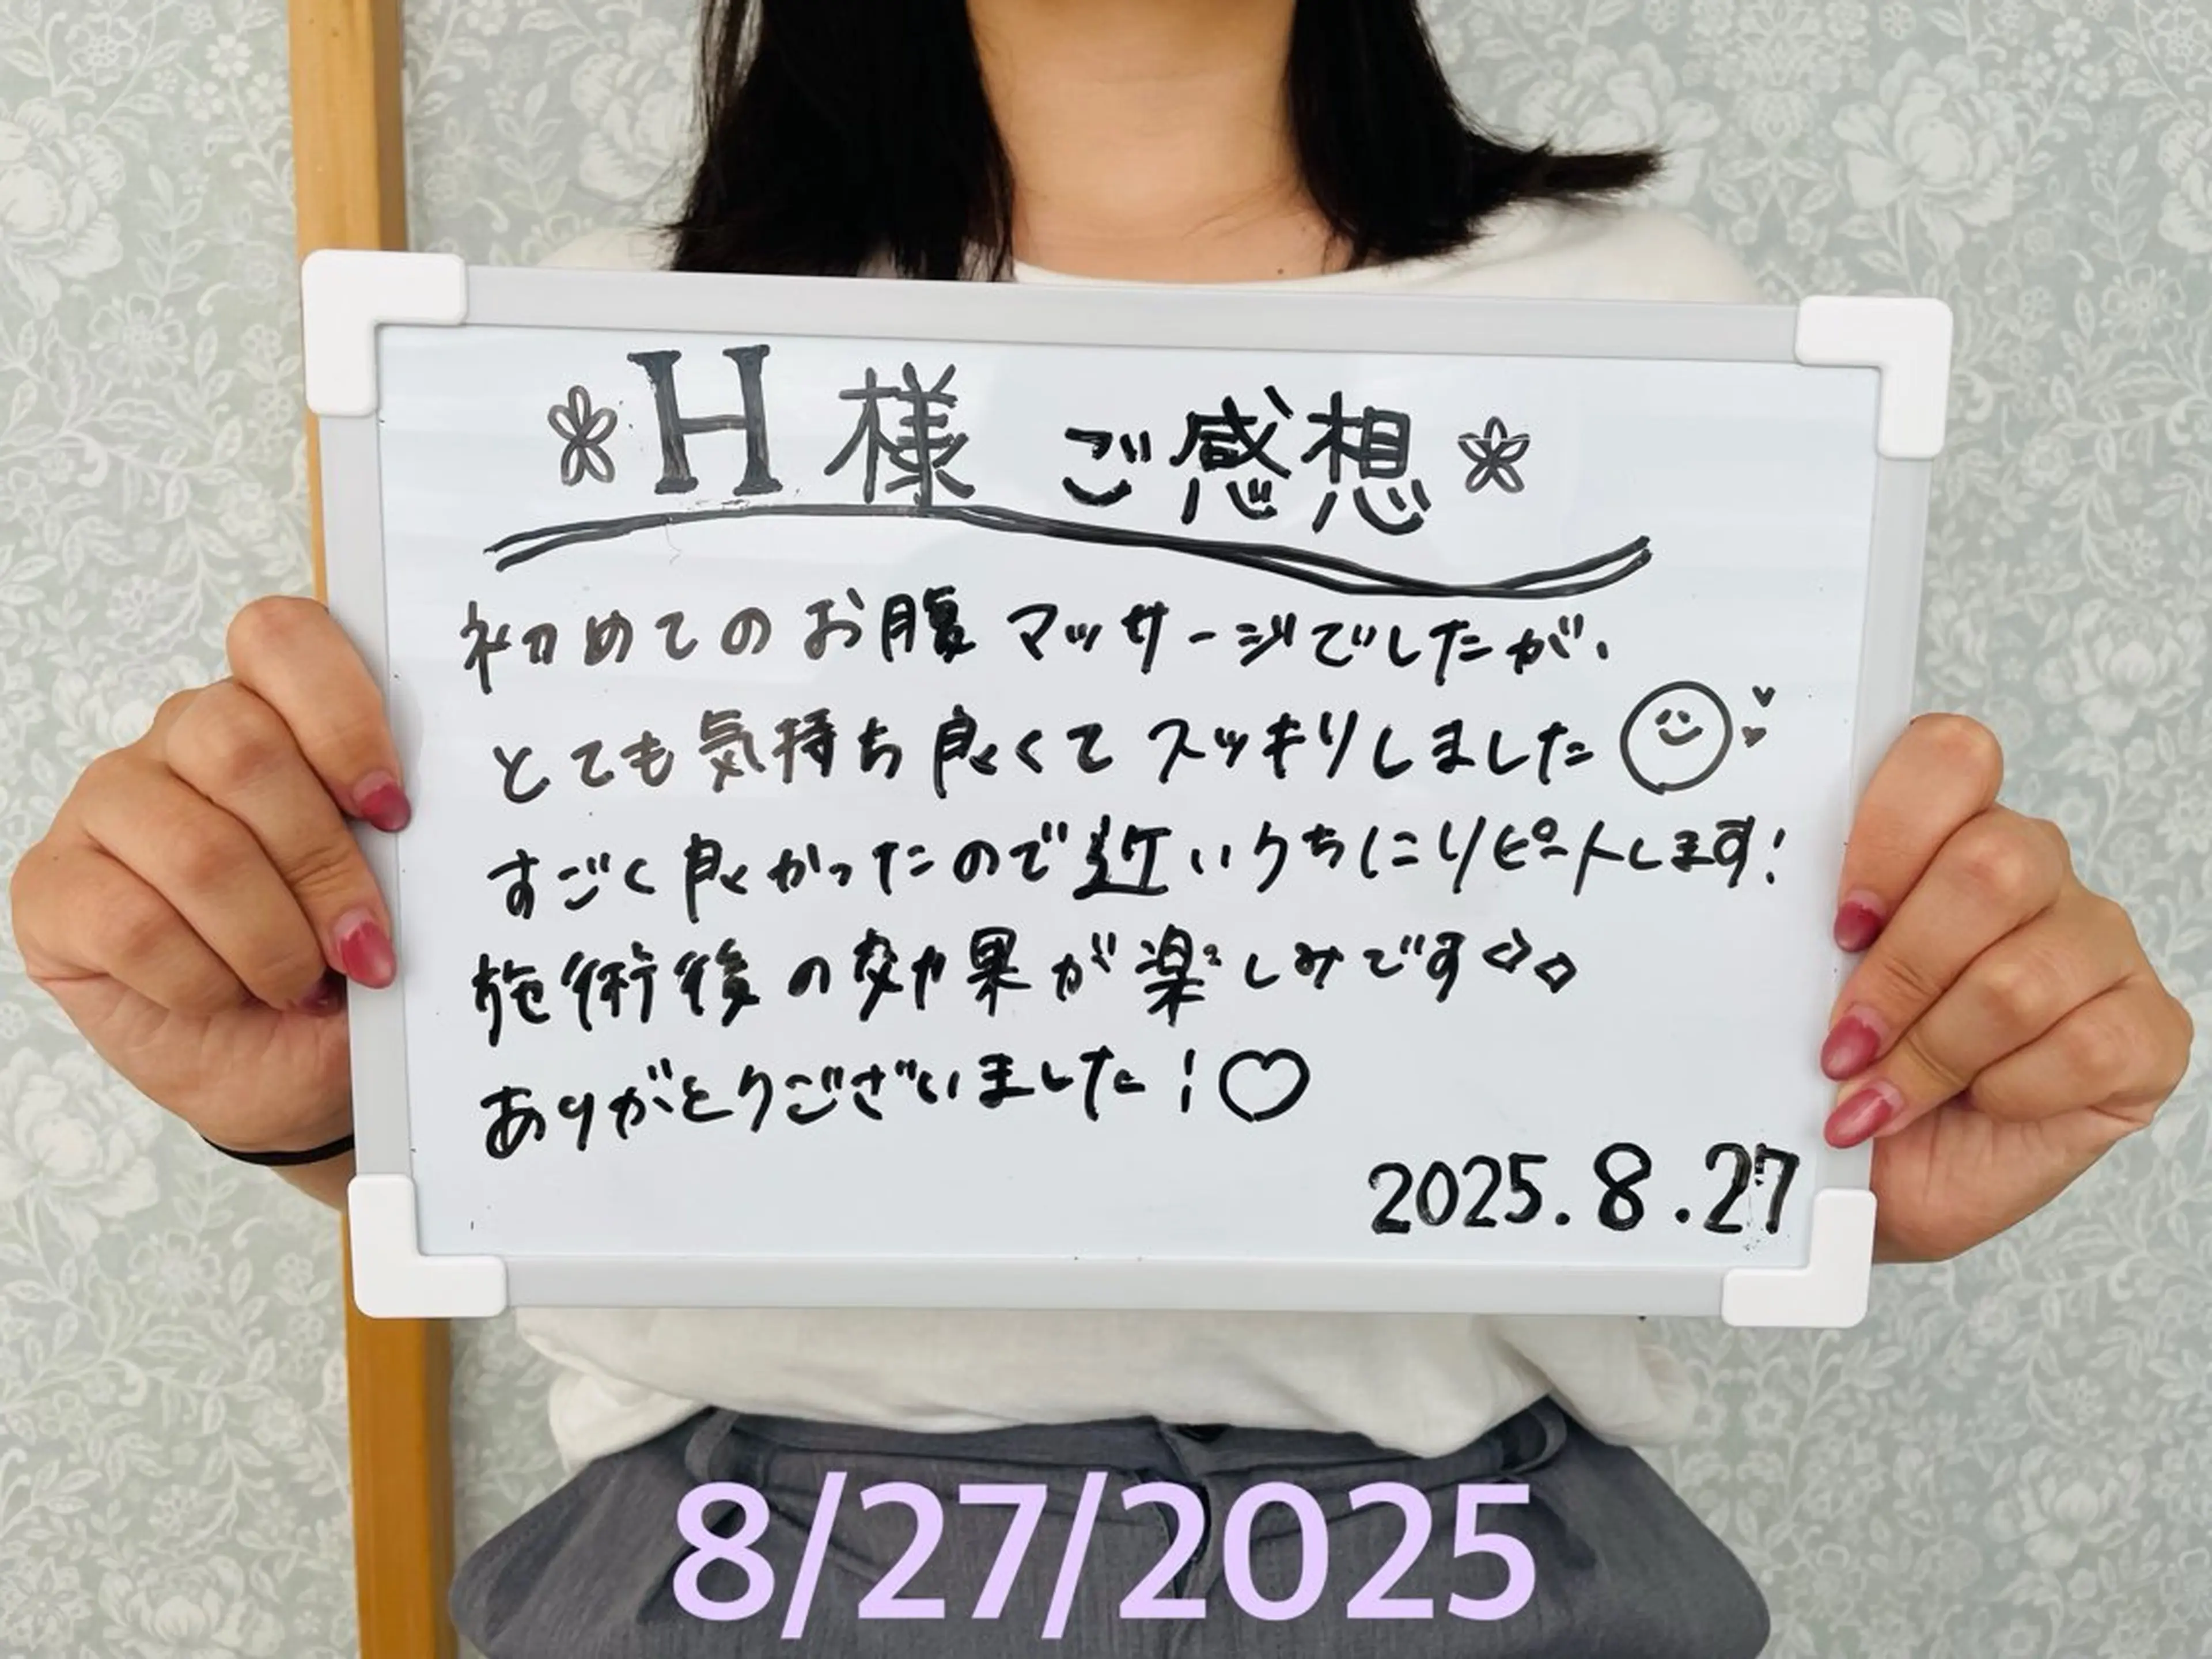 H様 ご感想
初めてのお腹マッサージでしたが、
とても気持ち良くてスッキリしました
すごく良かったので近いうちにリピートします!
施術後の効果が楽しみです
ありがとうございました!♡
2025.8.27
8/27/2025